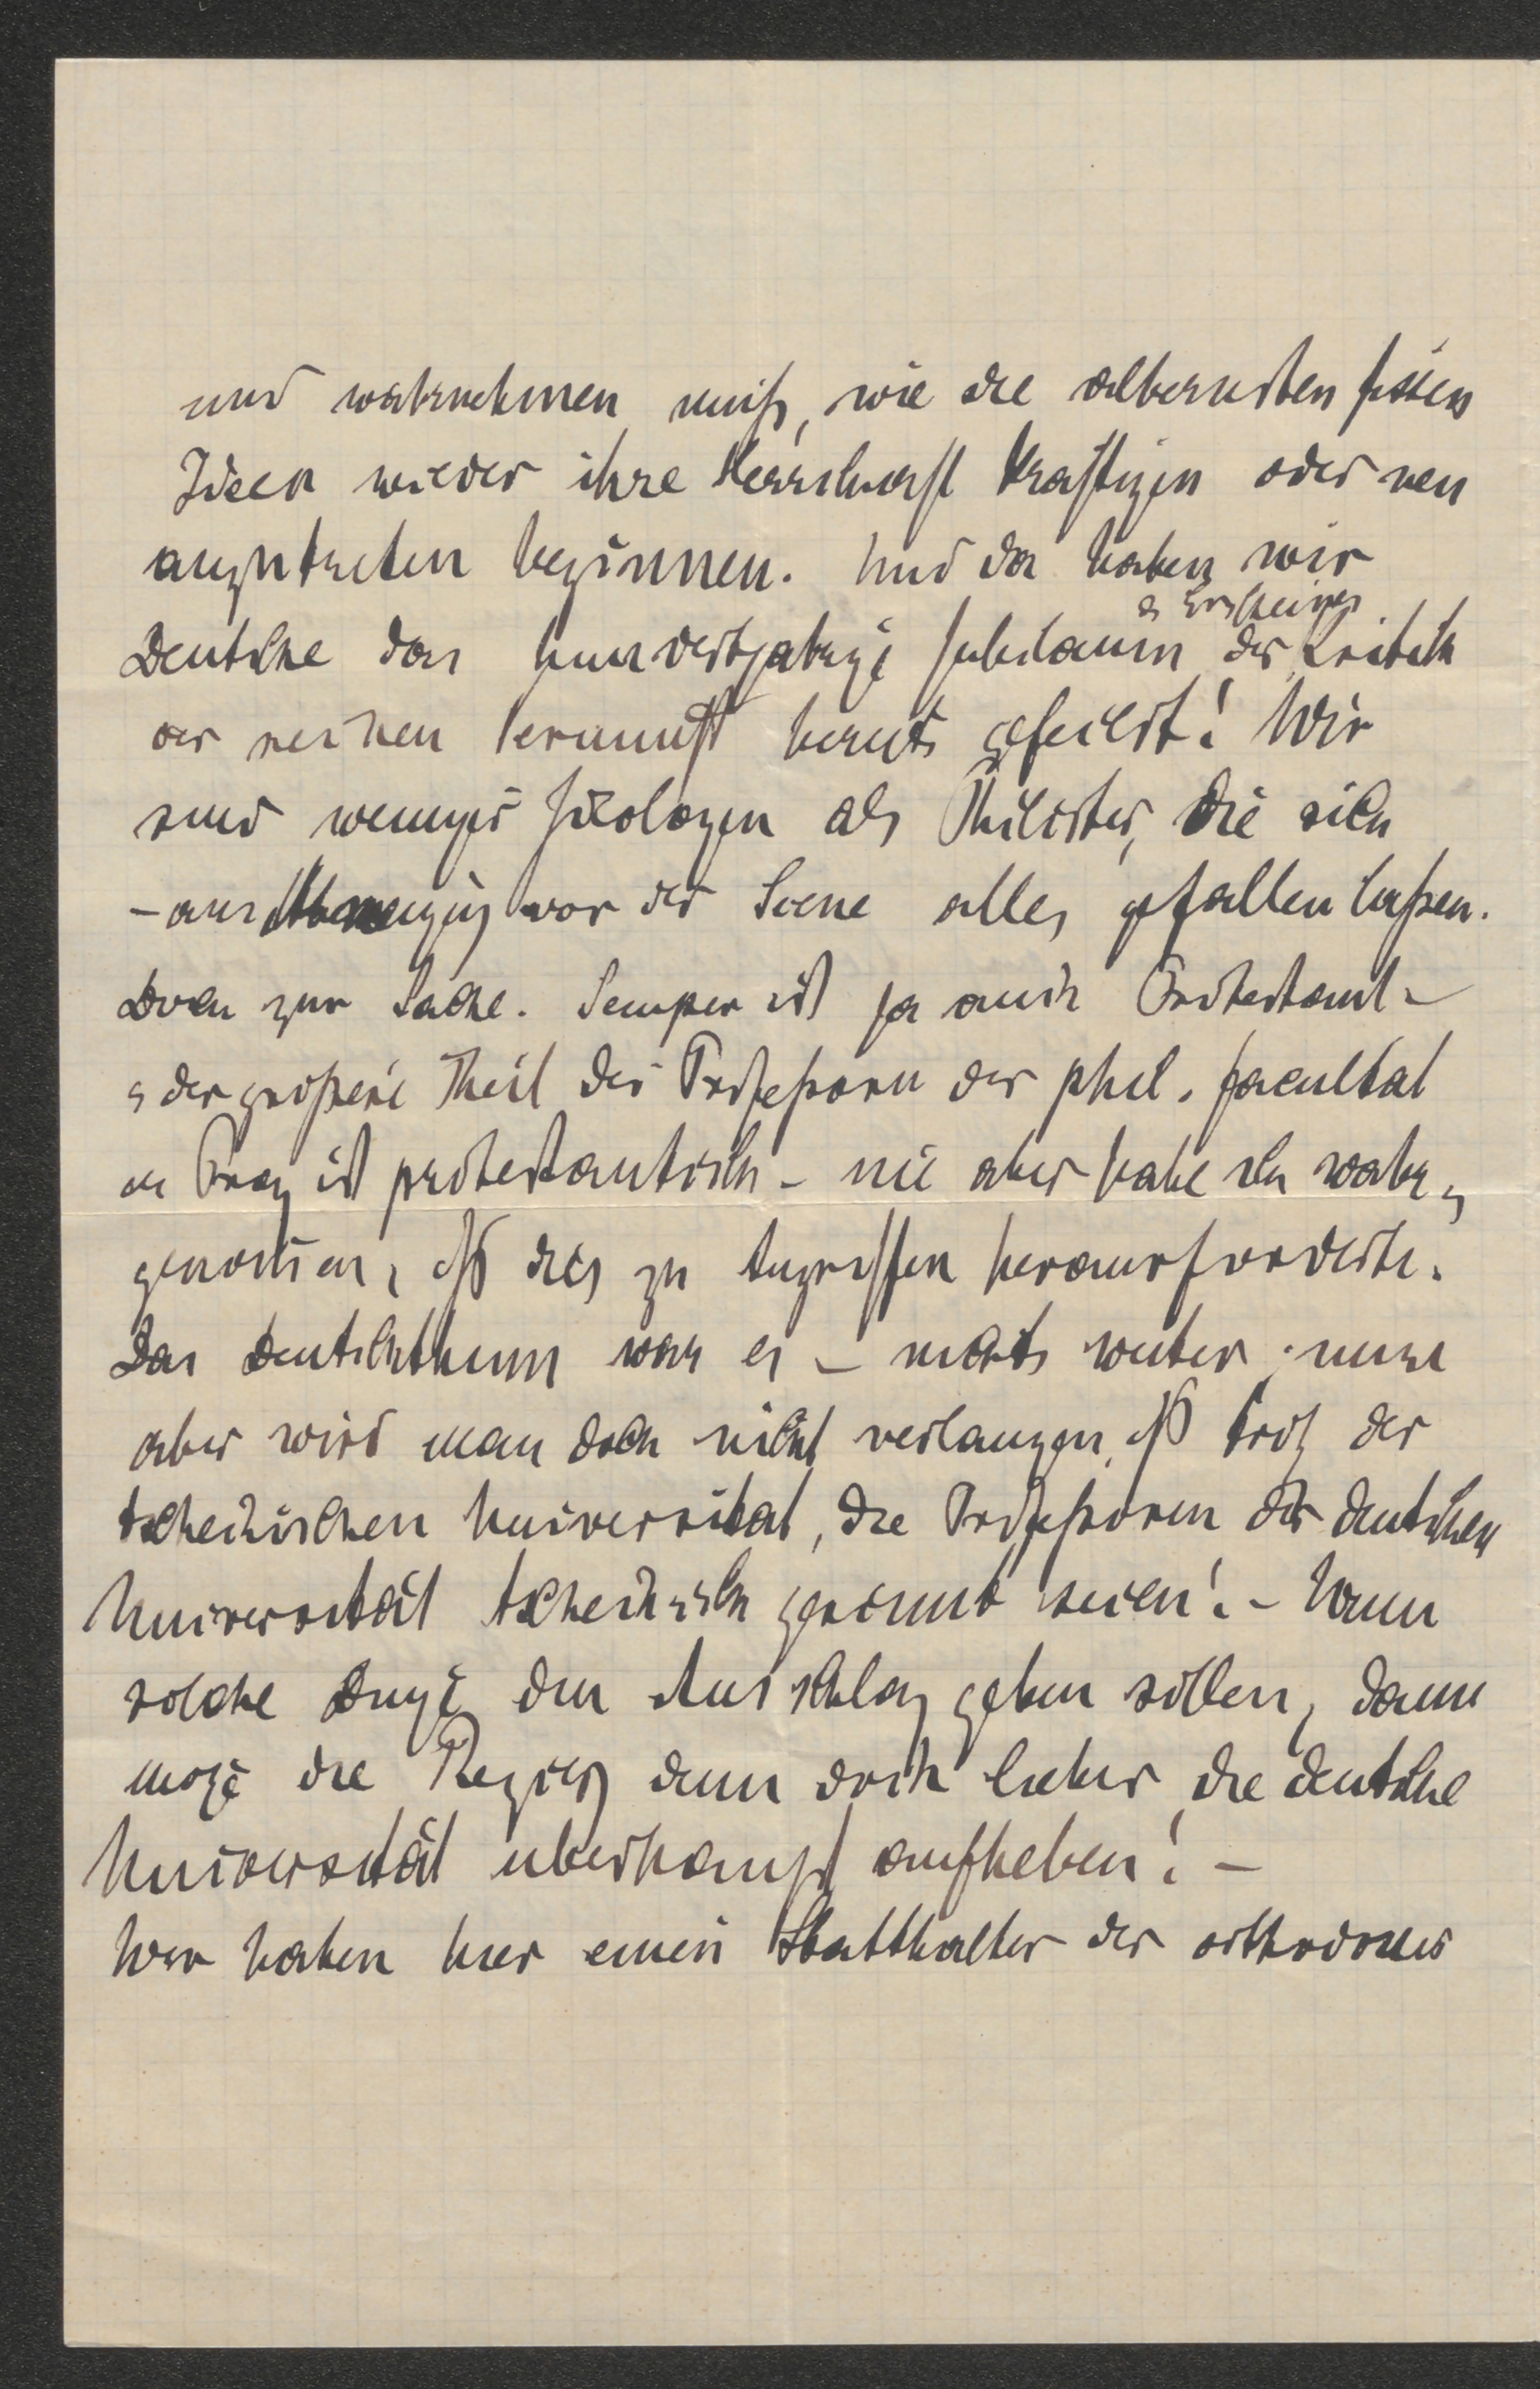 und wahrnehmen muß, wie die albernsten fixen
Ideen wieder ihre Herrschaft kräftigen oder neu
anzutreten beginnen. Und da haben wir
Deutsche das hundertjährige Jubiläum des Erscheinens der Kritik
der reinen Vernunft bereits gefeiert! Wir
sind weniger Ideologen als Philister, die sich
– aus Abneigung vor der Scene alles gefallen laßen.
Doch zur Sache. Semper ist ja auch Protestant –
u der größere Theil der Profeßoren der phil. Facultät
in Prag ist protestantisch – nie aber habe ich wahr-
genom̄en, dß dies zu Angriffen herausforderte.
Das Deutschthum war es – nichts weiter; nun
aber wird man doch nicht verlangen, dß trotz der
tschechischen Universität, die Profeßoren der deutschen
Universität tschechisch gesinnt seien! – Wenn
solche Dinge den Ausschlag geben sollen, dann
möge die Regierg denn doch lieber die deutsche
Universität überhaupt aufheben! –
Wir haben hier einen Statthalter der orthodoxer